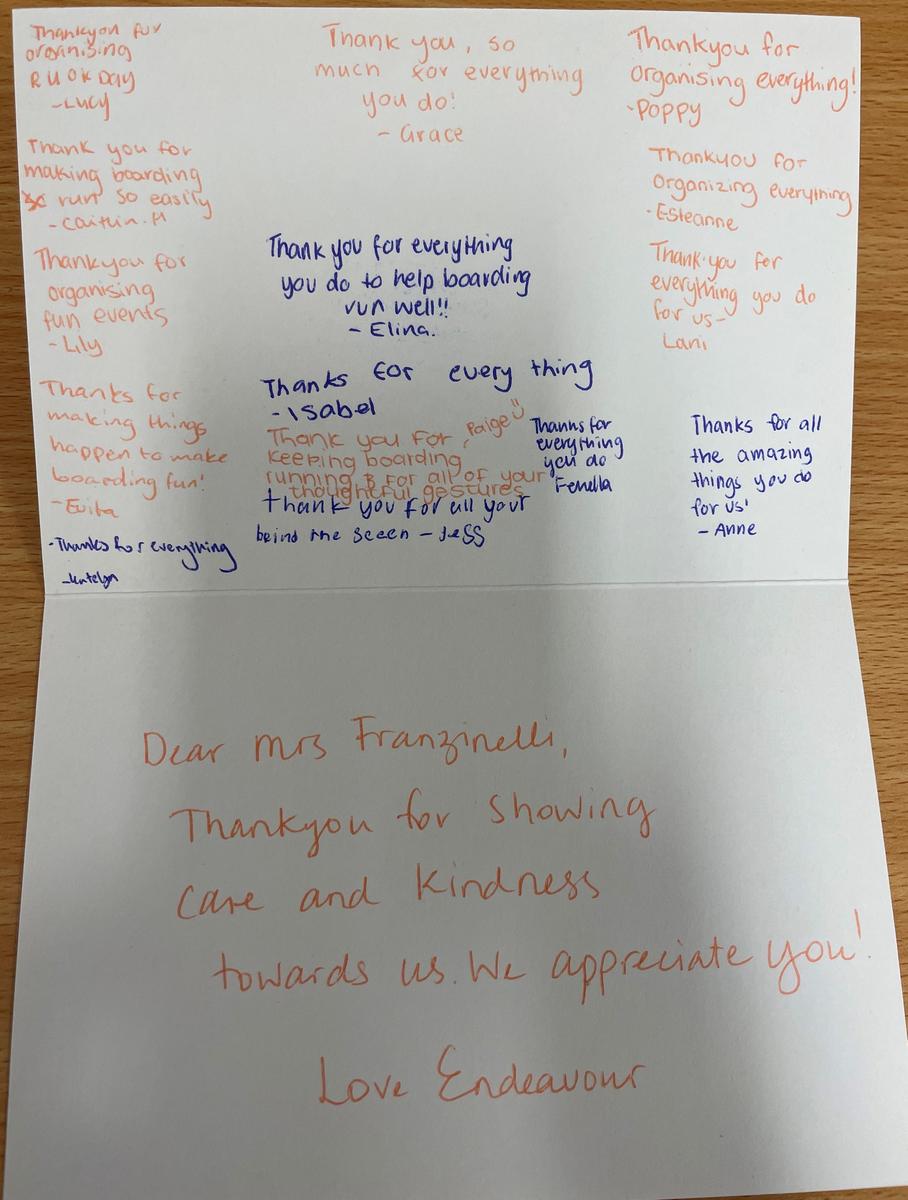 Thankyou for
organising
R U O K DAY
-Lucy
Thank you, so
much for everything
you do!
- Grace
Thankyou for
organising everything!
-Poppy
Thank you for
making boarding
run so easily
- Caitlin.M
Thankyou for
organizing everything
- Esleanne
Thankyou for
organising
fun events
- Lily
Thank you for everything
you do to help boarding
run well!!
- Elina.
Thank you for
everything you do
for us-
Lani
Thanks for
making things
happen to make
boarding fun!
- Evita
Thanks for every thing
- Isabel
Thank you for
keeping boarding
running & for all of your
thoughtful gestures
Paige
Thanks for
everything
you do
Fenella
Thanks for all
the amazing
things you do
for us!
- Anne
thank you for all your
beind the sceen - Jess
-Thanks for everything
Dear Mrs Franzinelli,
Thankyou for showing
care and kindness
towards us. We appreciate you!
Love Endeavour